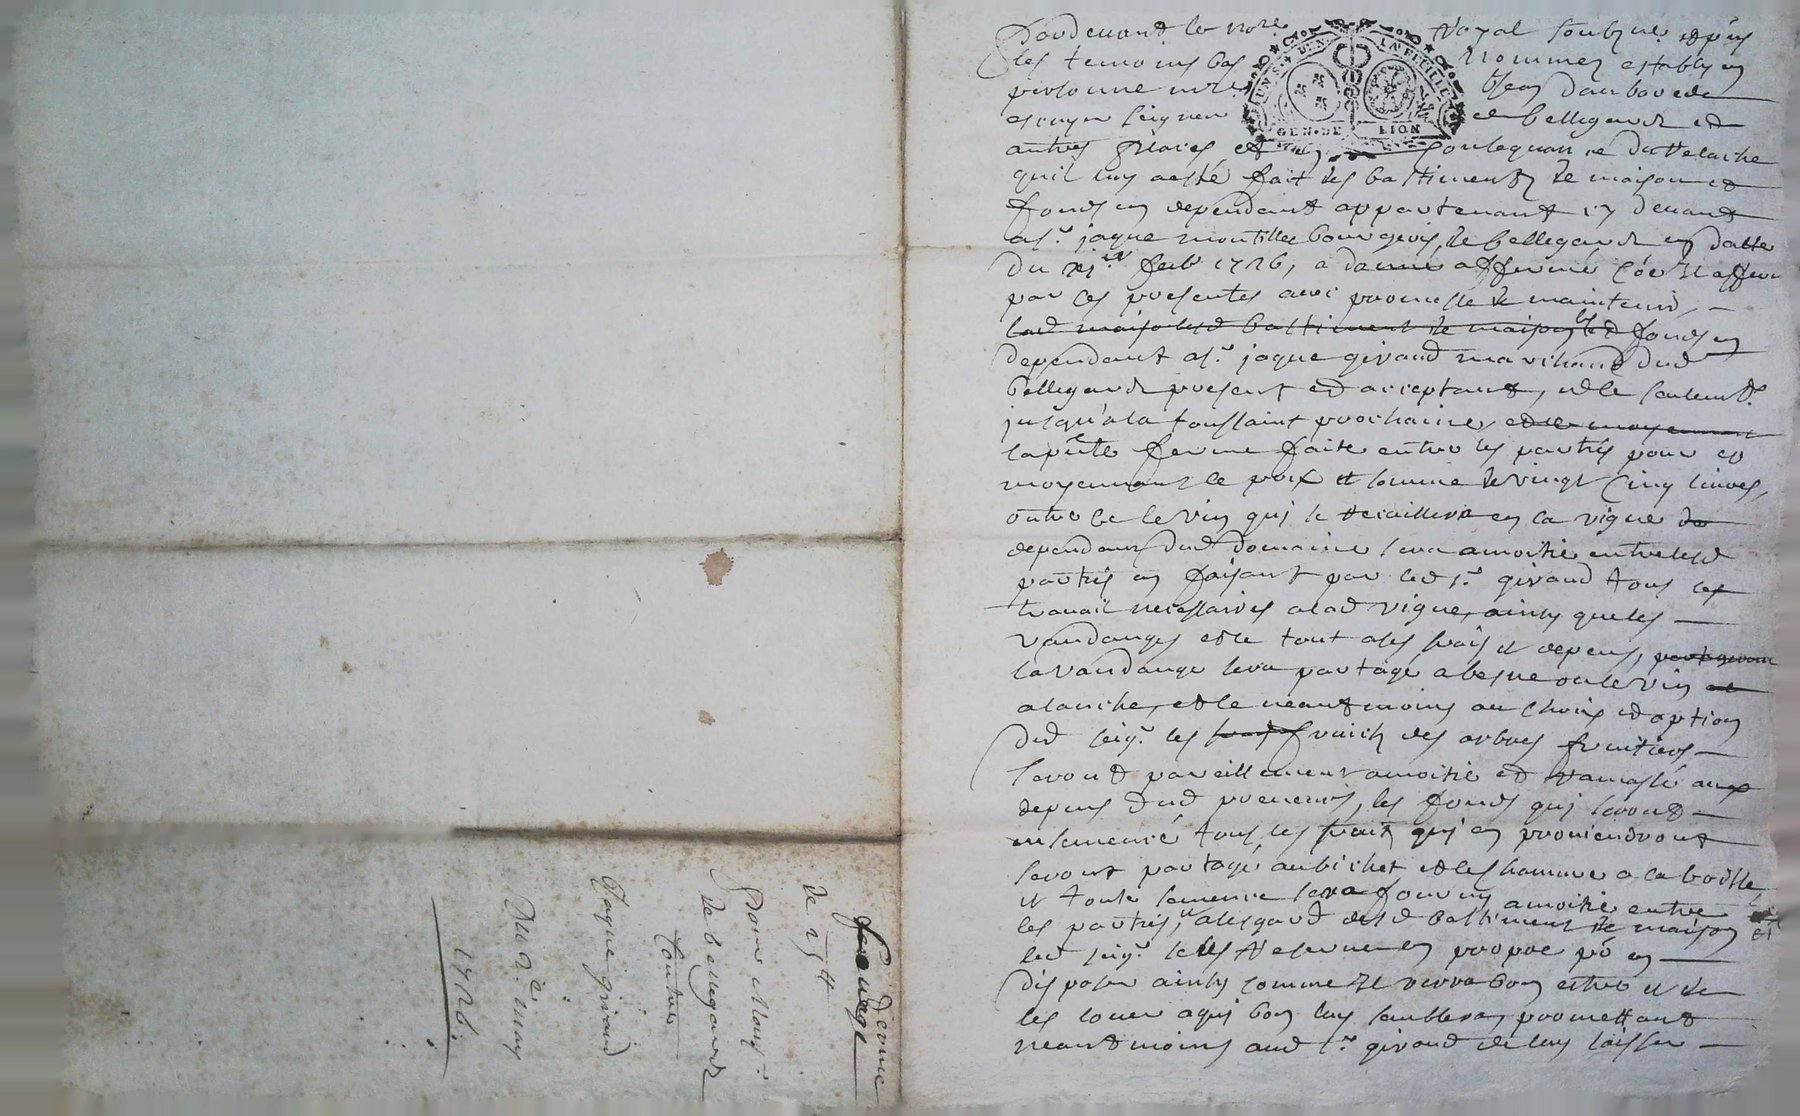 Pardevant le no.re Royal soubz.né et p.ns
les temoins bas nommez estably en
personne m.re
escuyer seigneur de bellegarde et
autres places et en consequance du relache
quil luy a esté fait des bastiments de maison et
fonds en dependant appartenant cy devant
a s.r jaque bourgeois de bellegarde en datte
du feb.r 1726, a donné afferme
par ces presentes avec promesse de maintenir,
lad maison batiment de maison et fonds en
dependant a s.r jaque girand marchand dud
bellegarde present et acceptant, et ce seulem.t
jusqu'a la toussaint prochaine et ce moyennant
la p.nte ferme faite entre les partis pour et
moyennant le prix et somme de vingt cinq livres,
outre ce le vin qui se recaillera en la vigne de
dependant dud domaine sera a moitié entre lesd
partis en faisant par led s.r girand tous les
travail necessaires a lad vigne, ainsy que les
vandanges et le tout a ses frais et depens, partageront
la vandange sera partagé a la benne ou le vin
a l'anche, et le neantmoins au choix et option
dud seig.r les fruich des arbres fruitiers
seront pareillement a moitié et ramassé aux
depens dud preneur, les fonds qui seront
insemencé tous les fruit qui en proviendront
seront partagé au bichet et les chanvre a la
et toute semence sera fourny a moitié entre
les partis, et a l'esgard desd bastiment de maison
led seig.r se les reserve en propre p.r en
disposer ainsy comme il verra bon estre et de
les louer a qui bon luy semblera, promettant
neantmoins aud s.r girand de luy laisser
ferme
de 25 ₶
pour
de bellegarde
contre
Jaque girand
Du 2.e may
1726.